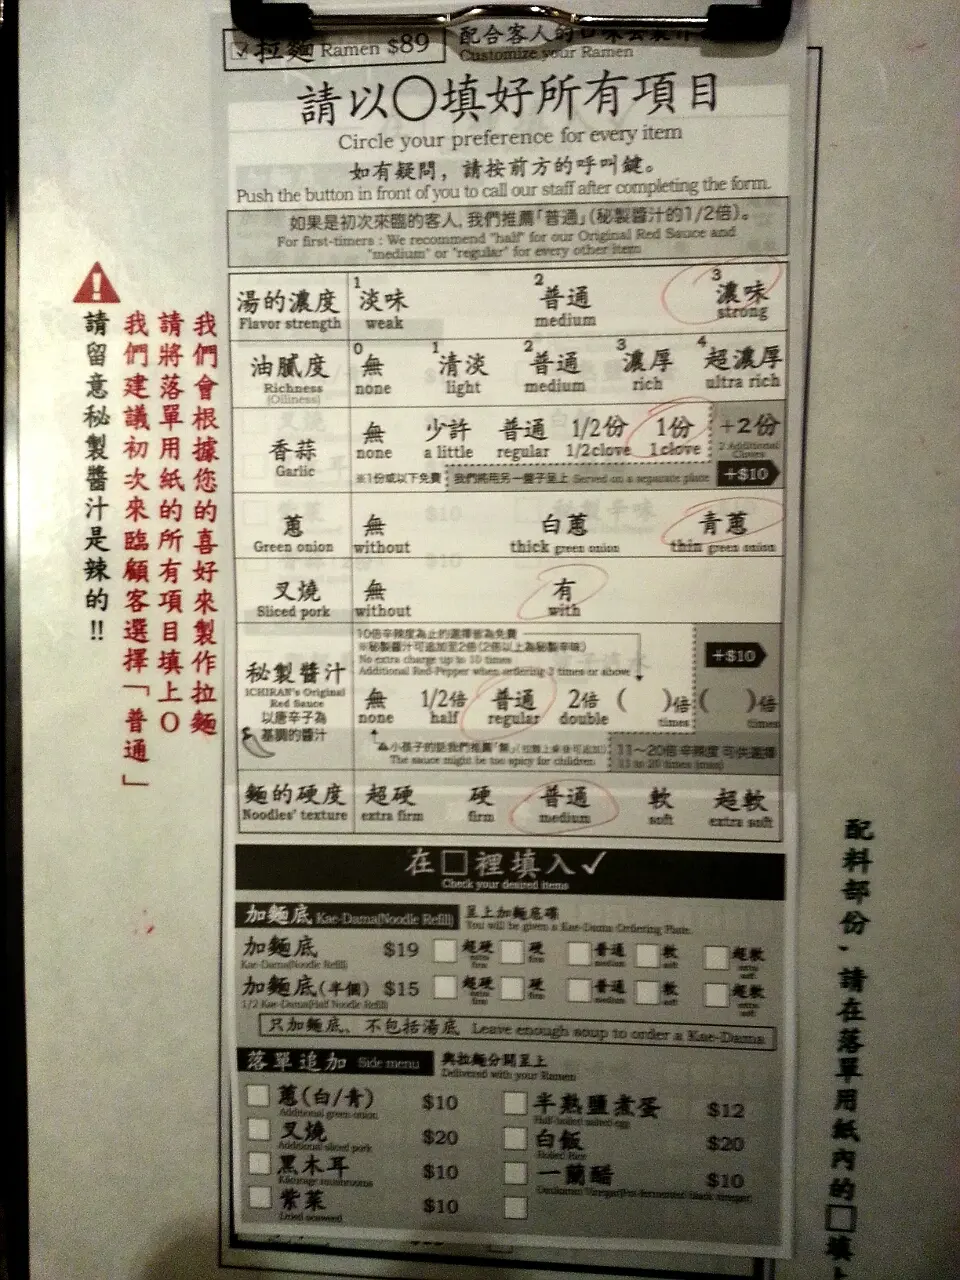 拉麵 Ramen $89
配合客人的口味
Customize your Ramen
請以○填好所有項目
Circle your preference for every item
如有疑問，請按前方的呼叫鍵。
Push the button in front of you to call our staff after completing the form.
如果是初次來臨的客人，我們推薦「普通」(秘製醬汁的1/2倍)。
For first-timers : We recommend "half" for our Original Red Sauce and
"medium" or "regular" for every other item
湯的濃度 1 淡味 2 普通 3 濃味
Flavor strength weak medium strong
油膩度 0 無 1 清淡 2 普通 3 濃厚 4 超濃厚
Richness none light medium rich ultra rich
(Oiliness)
香蒜 無 少許 普通 1/2份 1份 +2份
Garlic none a little regular 1/2clove 1clove 2 Additional Cloves
※1份或以下免費 我們將用另一盤子呈上 Served on a separate plate +$10
蔥 無 白蔥 青蔥
Green onion without thick green onion thin green onion
叉燒 無 有
Sliced pork without with
10倍辛辣度為止的選擇皆為免費
※秘製醬汁可追加至2倍(2倍以上為秘製辛味)
No extra charge up to 10 times
Additional Red-Pepper when ordering 3 times or above
+$10
秘製醬汁 無 1/2倍 普通 2倍 ( )倍 ( )倍
ICHIRAN's Original
Red Sauce none half regular double times times
以唐辛子為
基調的醬汁
The sauce might be too spicy for children
11～20倍 辛辣度 可供選擇
11 to 20 times (max)
麵的硬度 超硬 硬 普通 軟 超軟
Noodles' texture extra firm firm medium soft extra soft
在□裡填入✓
Check your desired items
加麵底 Kae-Dama(Noodle Refill) 呈上加麵底碟
You will be given a Kae-Dama Ordering Plate
加麵底 $19 超硬 硬 普通 軟 超軟
Kae-Dama(Noodle Refill) extra firm firm medium soft extra soft
加麵底(半個) $15 超硬 硬 普通 軟 超軟
1/2 Kae-Dama(Half Noodle Refill) extra firm firm medium soft extra soft
只加麵底、不包括湯底 Leave enough soup to order a Kae-Dama
落單追加 Side menu 與拉麵分開呈上
Delivered with your Ramen
蔥(白/青) $10 半熟鹽煮蛋 $12
Additional green onion Half-boiled salted egg
叉燒 $20 白飯 $20
Additional sliced pork Boiled Rice
黑木耳 $10 一蘭醋 $10
Kikurage mushrooms
紫菜 $10
Dried seaweed
我們會根據您的喜好來製作拉麵
請將落單用紙的所有項目填上○
我們建議初次來臨顧客選擇「普通」
請留意秘製醬汁是辣的!!
配料部份、請在落單用紙內的□填